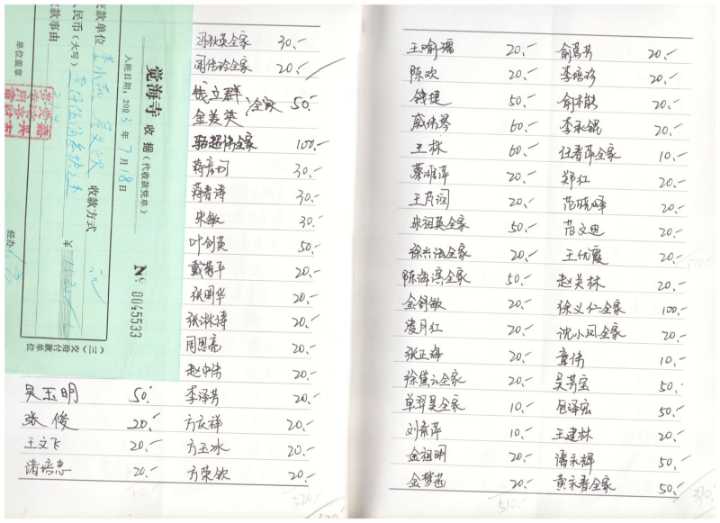 觉海寺 收据(代收款凭单)
入账日期:2023年7月18日
№ 0045533
交款单位
收款方式
人民币(大写)
¥
收款事由
单位盖章
经办
(三)交付款单位
冯秋英全家 30.-
周伟玲全家 20.-
钱立群
金美英 全家 50.-
骆超伟全家 100.-
30.-
蒋青诗 30.-
朱敏 30.-
叶剑英 50.-
戴菊平 20.-
张国华 20.-
张淋博 20.-
周恩亮 20.-
赵中伟 20.-
吴玉明 50.-
李泽芳 20.-
张俊 20.-
方庆祥 20.-
王文飞 20.-
方玉冰 20.-
潘培忠 20.-
方荣钦 20.-
王喻瑶 20.-
20.-
陈欢 20.-
李培珍 20.-
钱捷 50.-
20.-
戚伟琴 60.-
李永银 20.-
王林 60.-
任春萍全家 10.-
蔡雅萍 20.-
郑红 20.-
王芦润 20.-
范晓峰 20.-
朱祖英全家 50.-
范文忠 20.-
徐兴法全家 20.-
王优霞 20.-
陈海滨全家 50.-
赵美林 20.-
金舒敏 20.-
徐义仁全家 100.-
凌月红 20.-
沈小凤全家 20.-
张正海 20.-
章伟 10.-
20.-
吴芳宝 50.-
单翠昊全家 10.-
包泽宏 50.-
刘素萍 10.-
王建林 20.-
金祖明 20.-
潘永辉 50.-
金梦茜 20.-
黄永春全家 50.-